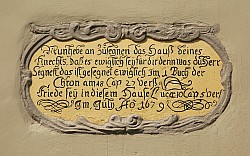 Nun hebe an zusegnen das Hauß deines
Knechts, daß es ewiglich sey für dir den was du Herr
Segnest das ist gesegnet Ewiglich im 1 Buch der
Chron am 18 Cap 27 vers
Friede sey in diesem Hause Luc 10 Cap 5 vers
Ao 1679